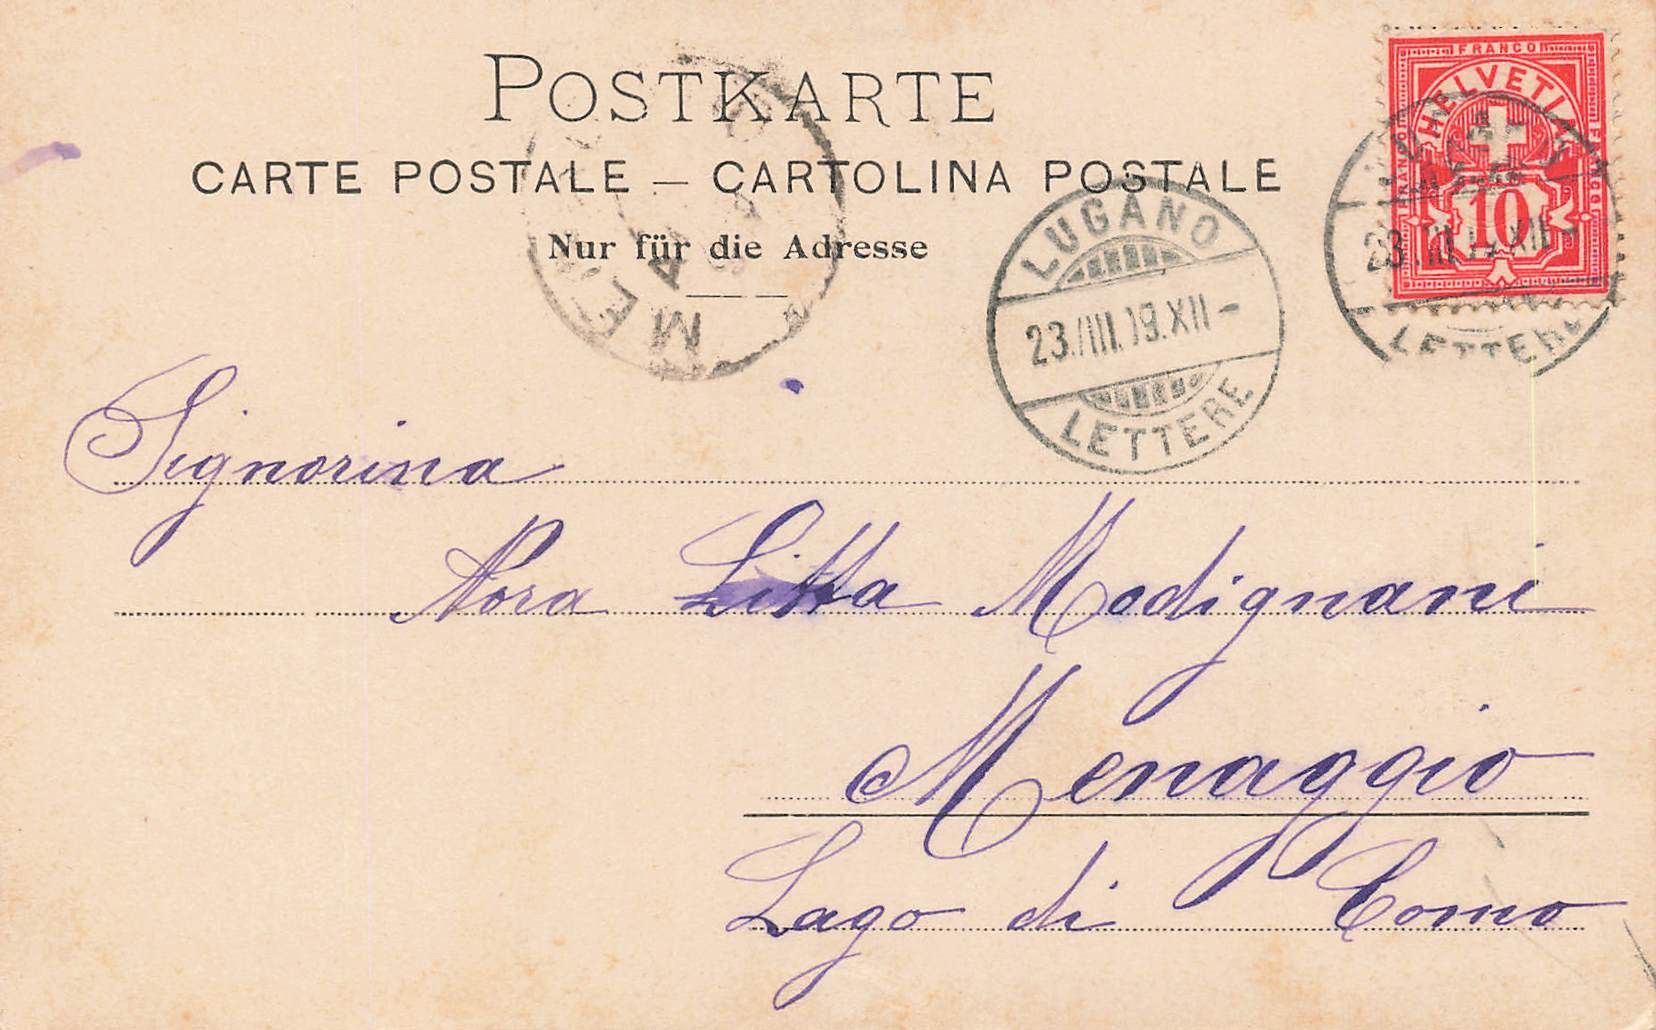 POSTKARTE
CARTE POSTALE — CARTOLINA POSTALE
Nur für die Adresse
FRANCO
HELVETIA
FRANCO
FRANCO
10
LUGANO
23./III.19.XII-
LETTERE
23.III
XII-
LETTERE
Signorina
Nora Litta Modignani
Menaggio
Lago di Como